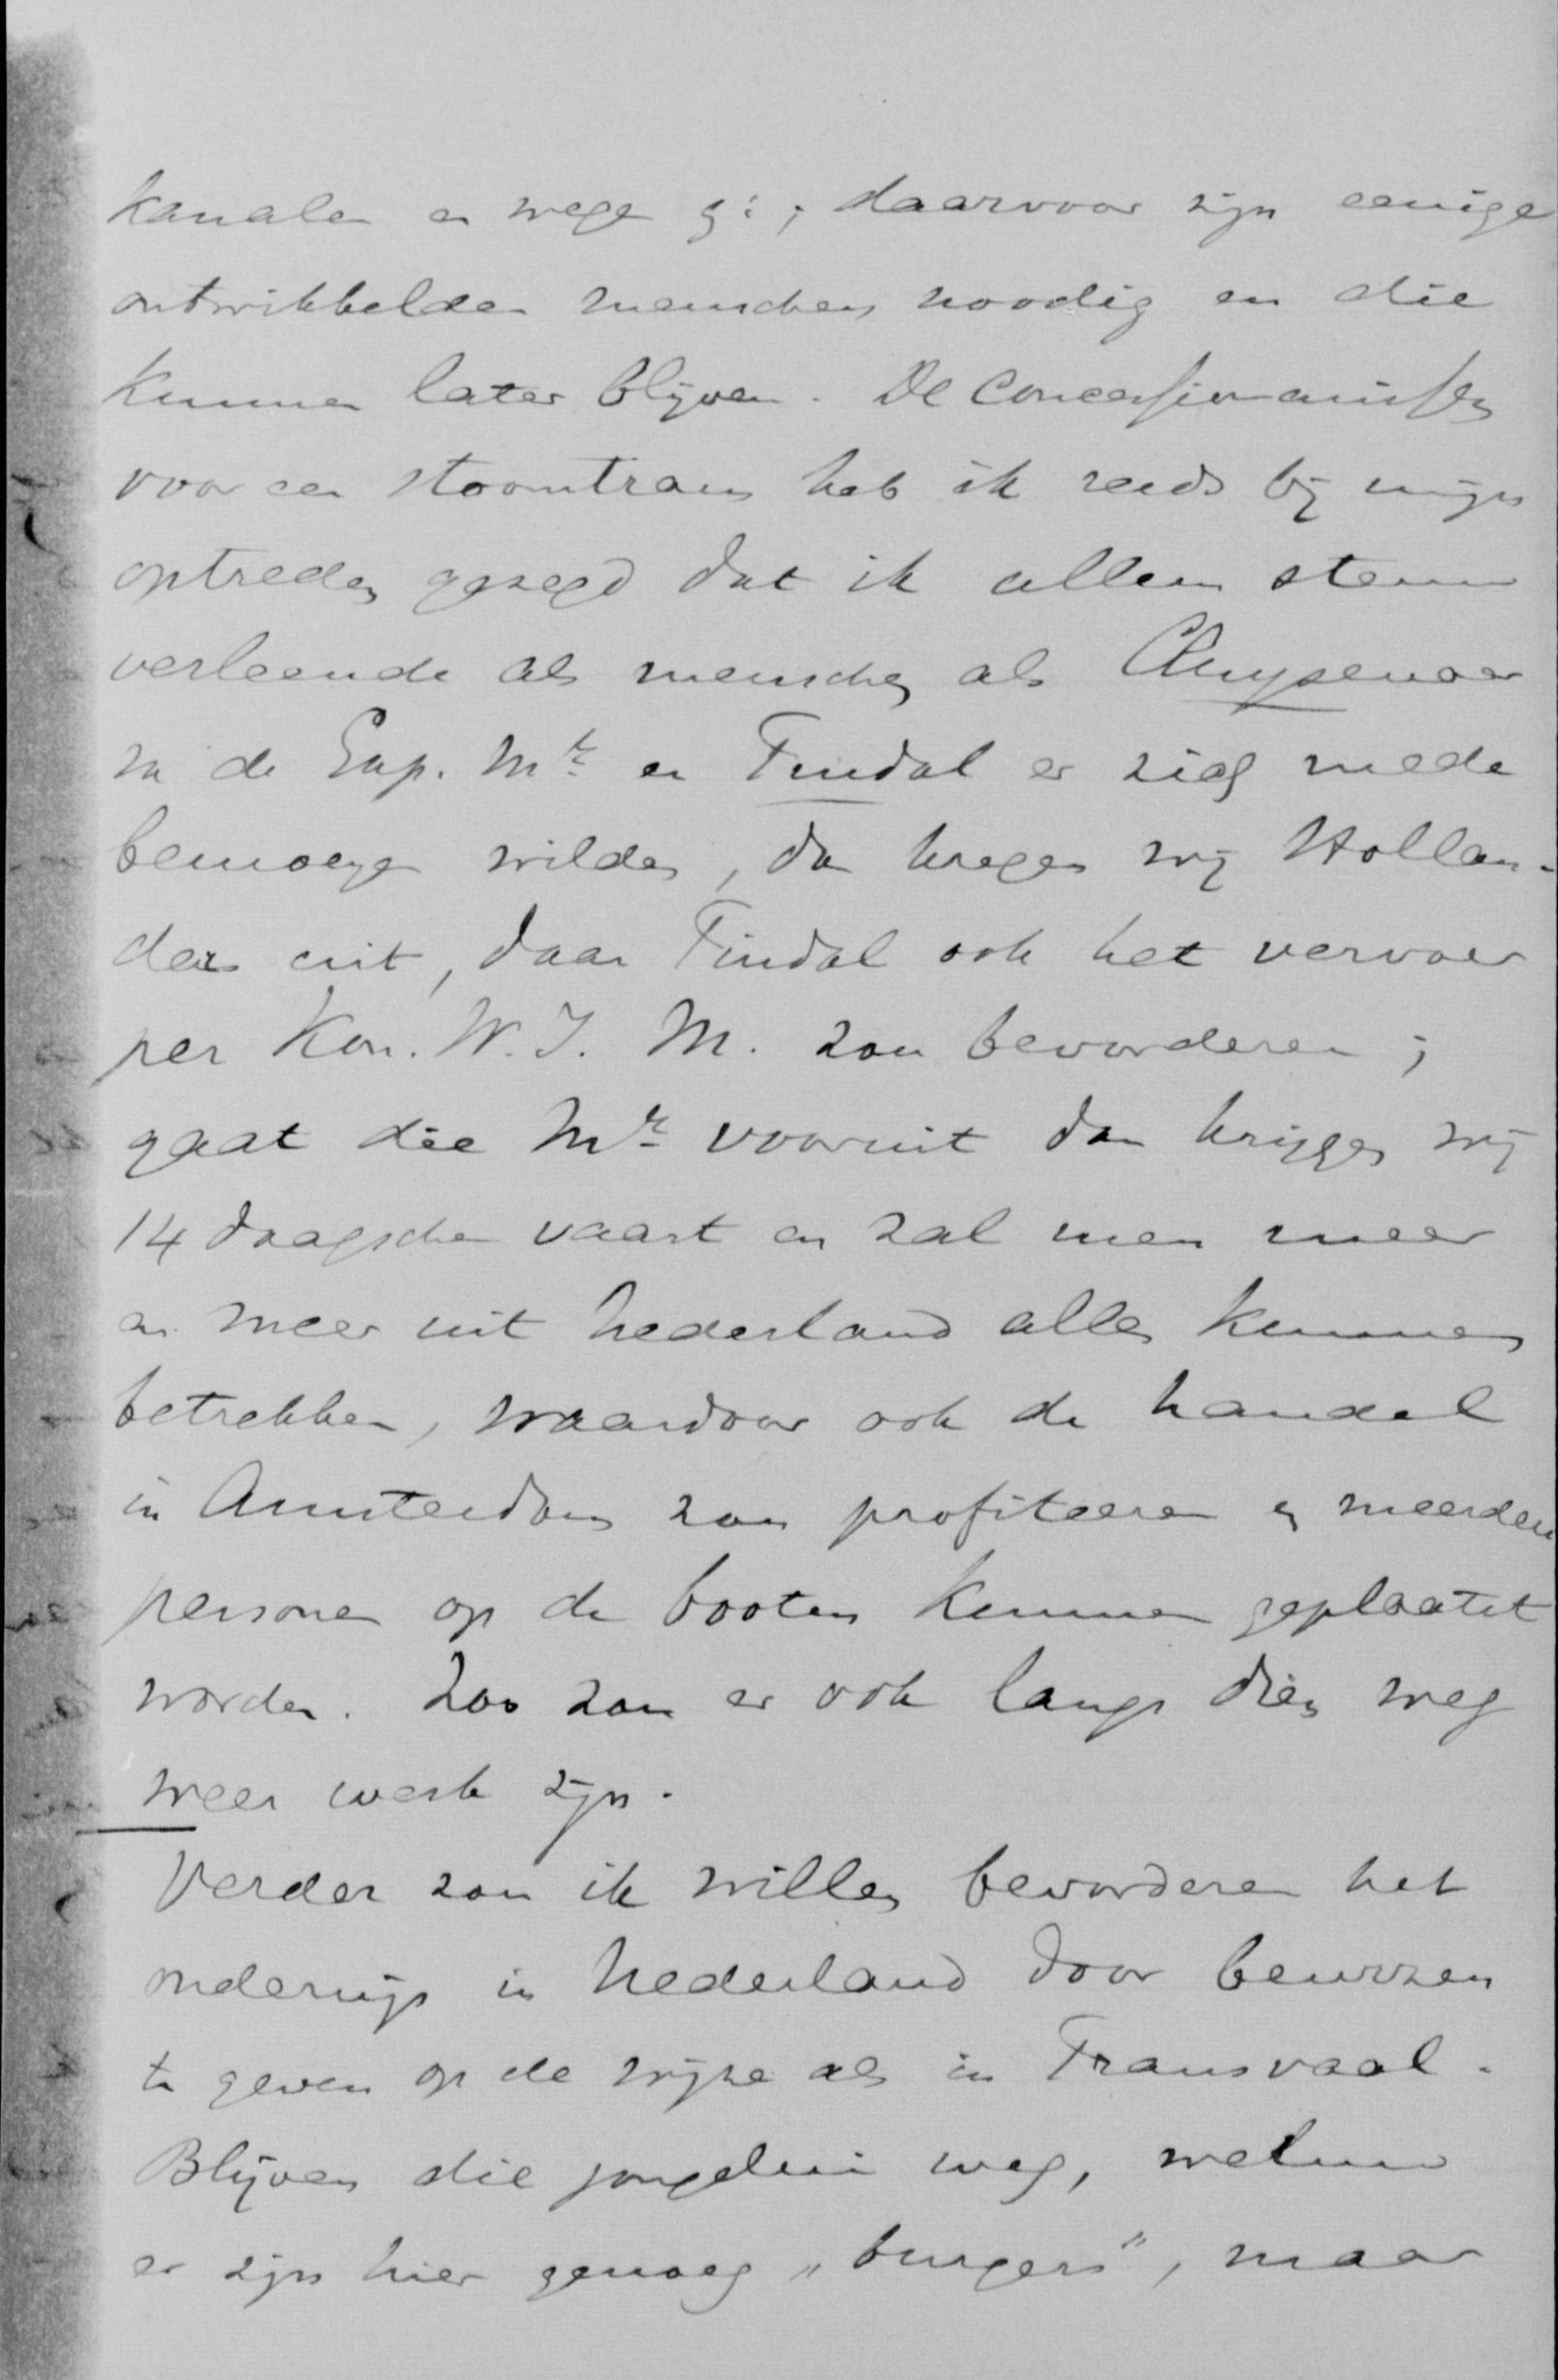 kanalen en wegen z: ; daarvoor zijn eenige
ontwikkelde menschen noodig en die
kunnen later blijven. De Concessionarissen
voor een stoomtram heb ik reeds bij mijn
optreden gezegd dat ik alleen steun
verleende als menschen als Cluysenaer
in de Exp. Mij en Tindal er zich mede
bemoeyen wilden, dan kregen wij Hollan-
ders uit, daar Tindal ook het vervoer
per Kon. W. I. M. zou bevorderen;
gaat die Mij vooruit dan krijgen wij
14 daagsche vaart en zal men meer
en meer uit Nederland alles kunnen
betrekken, waardoor ook de handel
in Amsterdam zou profiteeren en meerdere
personen op de booten kunnen geplaatst
worden. Zoo zou er ook langs dien weg
meer werk zijn.
Verder zou ik willen bevorderen het
onderwijs in Nederland door beurzen
te geven op de wijze als in Transvaal.
Blijven die jongelui weg, welnu
er zijn hier genoeg „burgers", maar